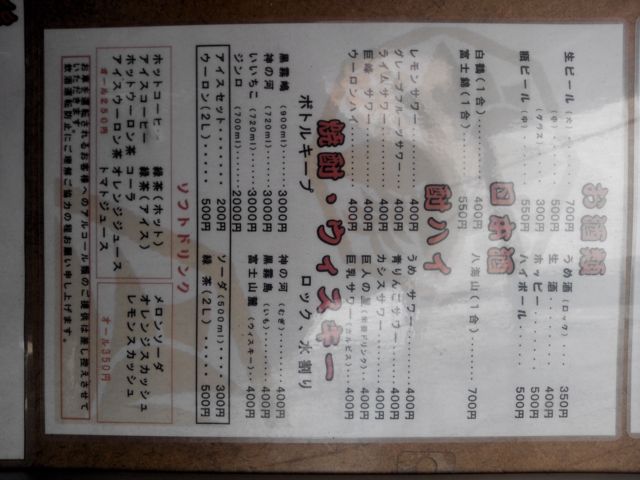 お酒類
生ビール(大)‥‥700円 うめ酒(ロック)‥350円
(中)‥‥500円 生酒‥‥‥‥400円
(グラス)‥‥300円 ホッピー‥‥‥500円
瓶ビール(中)‥‥500円 ハイボール‥‥500円
日本酒
白鶴(1合)‥‥‥400円 八海山(1合)‥‥‥700円
富士錦(1合)‥‥550円
酎ハイ
レモンサワー‥‥‥400円 うめサワー‥‥‥400円
グレープフルーツサワー‥400円 青りんごサワー‥‥400円
ライムサワー‥‥‥400円 カシスサワー‥‥400円
巨峰サワー‥‥‥400円 巨人の星‥400円
ウーロンハイ‥‥‥400円 巨乳サワー(カルピス)‥400円
焼酎・ウィスキー
ボトルキープ ロック、水割り
黒霧島(900ml)‥‥3000円 神の河(むぎ)‥‥400円
神の河(720ml)‥‥3000円 黒霧島(いも)‥‥400円
いいちこ(720ml)‥‥3000円 富士山麓(ウィスキー)‥400円
ジンロ(700ml)‥‥2000円
アイスセット‥‥‥200円 ソーダ(500ml)‥‥300円
ウーロン(2L)‥‥‥500円 緑茶(2L)‥‥‥500円
ソフトドリンク
オール250円 オール350円
ホットコーヒー 緑茶(ホット) メロンソーダ
アイスコーヒー 緑茶(アイス) オレンジスカッシュ
ホットウーロン茶 コーラ レモンスカッシュ
アイスウーロン茶 オレンジジュース
トマトジュース
お車を運転されるお客様へのアルコール類のご提供は差し控えさせて
いただきます。
飲酒運転防止にご理解ご協力の程お願い申し上げます。